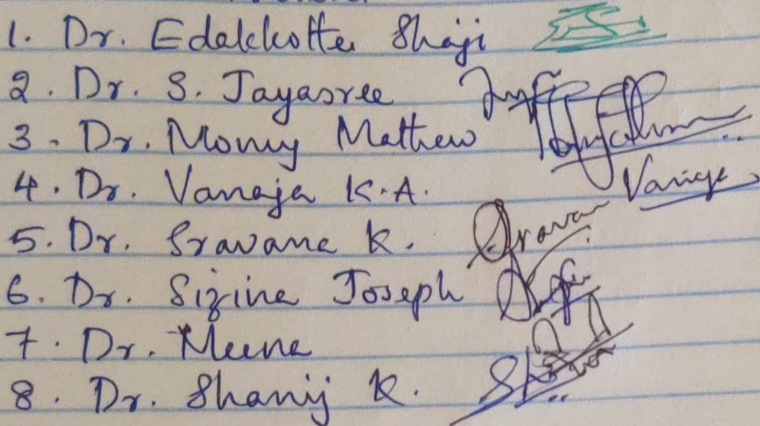 1. Dr. Edakkotte Shaji
2. Dr. S. Jayasree
3. Dr. Momy Mathew
4. Dr. Vanaja K.A. Vanaja
5. Dr. Sravana K. Sravan
6. Dr. Sizina Joseph
7. Dr. Meena
8. Dr. Shanij K.